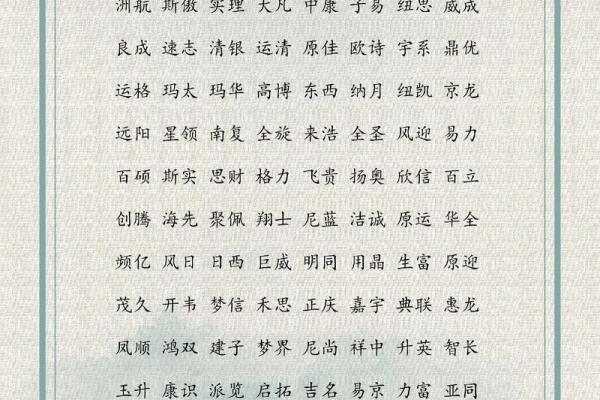 洲航 斯傲 实理 大凡 中康 子易 纽思 威成
良成 速志 清银 运清 原佳 欧诗 宇系 鼎优
运格 玛太 玛华 高博 东西 纳月 纽凯 京龙
远阳 星领 南复 全旋 来浩 全圣 风迎 易力
百硕 斯实 思财 格力 飞贵 扬奥 欣信 百立
创腾 海先 聚佩 翔士 尼蓝 洁诚 原运 华全
频亿 风日 日西 巨威 明同 用晶 生富 原迎
茂久 开韦 梦信 禾思 正庆 嘉宇 典联 惠龙
凤顺 鸿双 建子 梦界 尼尚 祥中 升英 智长
玉升 康识 派览 启拓 吉名 易京 力富 亚同